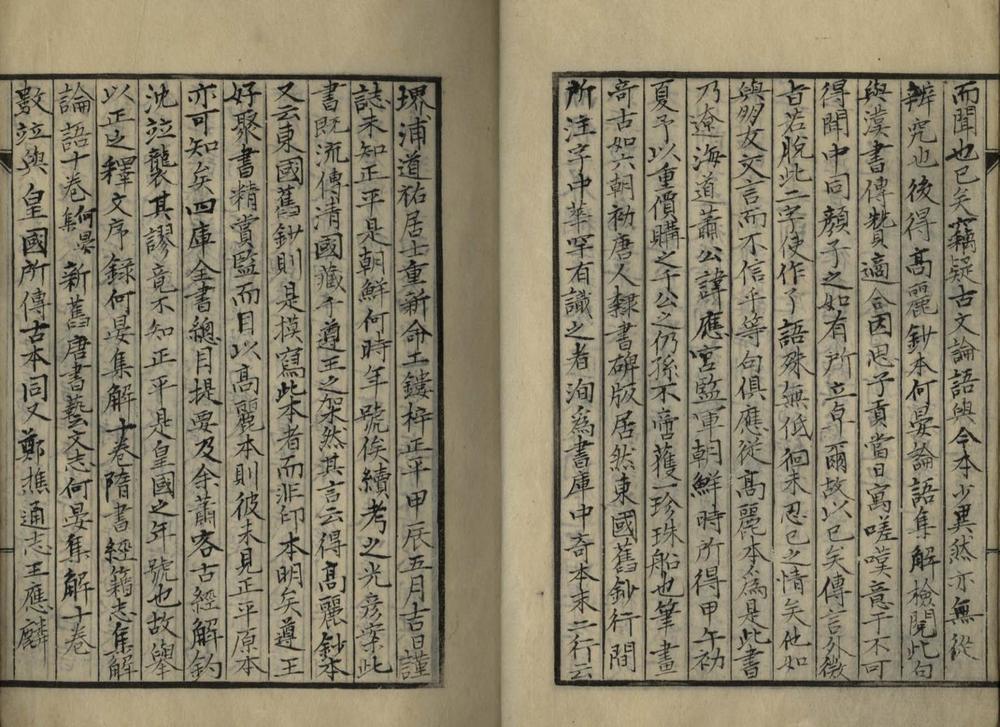 而聞也已矣竊疑古文論語與今本少異然亦無從
辨究也後得高麗鈔本何晏論語集解檢閱此句
與漢書傳贊適合因思子貢當日寓嗟嘆意于不可
得聞中同顏子之如有所立卓爾故以已矣傳言外微
旨若脫此二字使作了語殊無低徊未忍已之情矣他如
與朋友交言而不信乎等句俱應從高麗本為是此書
乃遼海道蕭公諱應宮監軍朝鮮時所得甲午初
夏予以重價購之于公之仍孫不啻獲一珍珠船也筆畫
奇古如六朝初唐人隸書碑版居然東國舊鈔行間
所注字中華罕有識之者洵為書庫中奇本末二行云
堺浦道祐居士重新命工鏤梓正平甲辰五月吉日謹
誌未知正平是朝鮮何時年號俟續考之光彥案此
書既流傳清國藏于遵王之架然其言云得高麗鈔本
又云東國舊鈔則是摸寫此本者而非印本明矣遵王
好聚書精賞監而目以高麗本則彼未見正平原本
亦可知矣四庫全書總目提要及余蕭客古經解鈎
沈竝襲其謬竟不知正平是皇國之年號也故舉
以正之釋文序錄何晏集解十卷隋書經籍志集解
論語十卷何晏集新舊唐書藝文志何晏集解十卷
數竝與皇國所傳古本同又鄭樵通志王應麟